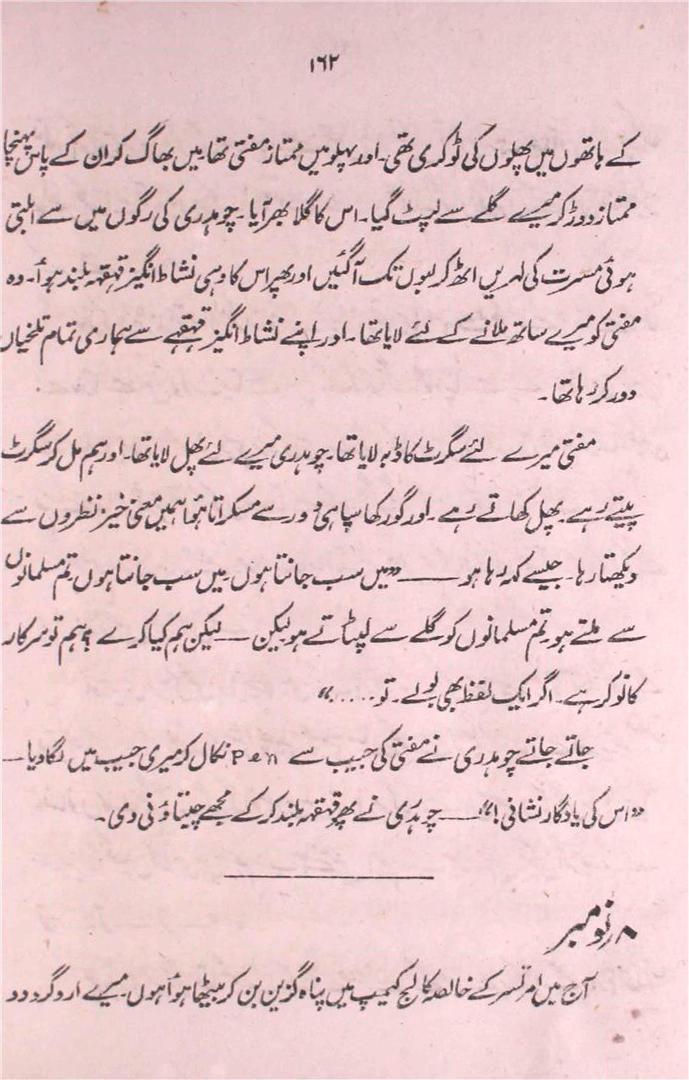 ۱۶۲
کے ہاتھوں میں پھلوں کی ٹوکری تھی۔ اور پہلو میں ممتاز مفتی تھا۔ میں بھاگ کر ان کے پاس پہنچا
ممتاز دوڑ کر میرے گلے سے لپٹ گیا۔ اس کا گلا بھر آیا۔ چوہدری کی رگوں میں سے ابلتی
ہوئی مسرت کی لہریں اٹھ کر لبوں تک آ گئیں اور پھر اس کا وہی نشاط انگیز قہقہہ بلند ہوأ۔ وہ
مفتی کو میرے ساتھ ملانے کے لئے لایا تھا۔ اور اپنے نشاط انگیز قہقہے سے ہماری تمام تلخیاں
دور کر رہا تھا۔
مفتی میرے لئے سگرٹ کا ڈبہ لایا تھا۔ چوہدری میرے لئے پھل لایا تھا۔ اور ہم مل کر سگرٹ
پیتے رہے۔ پھل کھاتے رہے۔ اور گورکھا سپاہی دور سے مسکراتا ہوأ ہمیں معنی خیز نظروں سے
دیکھتا رہا۔ جیسے کہہ رہا ہو —— ”میں سب جانتا ہوں۔ میں سب جانتا ہوں۔ تم مسلمانوں
سے ملتے ہو۔ تم مسلمانوں کو گلے سے لپٹاتے ہو لیکن — لیکن ہم کیا کرے؟ ہم تو سرکار
کا نوکر ہے۔ اگر ایک لفظ بھی بولے۔ تو .....“
جاتے جاتے چوہدری نے مفتی کی جیب سے Pen نکال کر میری جیب میں لگا دیا —
”اس کی یادگار نشانی!“ —— چوہدری نے پھر قہقہہ بلند کر کے مجھے چیتاؤنی دی۔
۸ نومبر
آج میں امرتسر کے خالصہ کالج کیمپ میں پناہ گزین بن کر بیٹھا ہوأ ہوں۔ میرے اردگرد دو